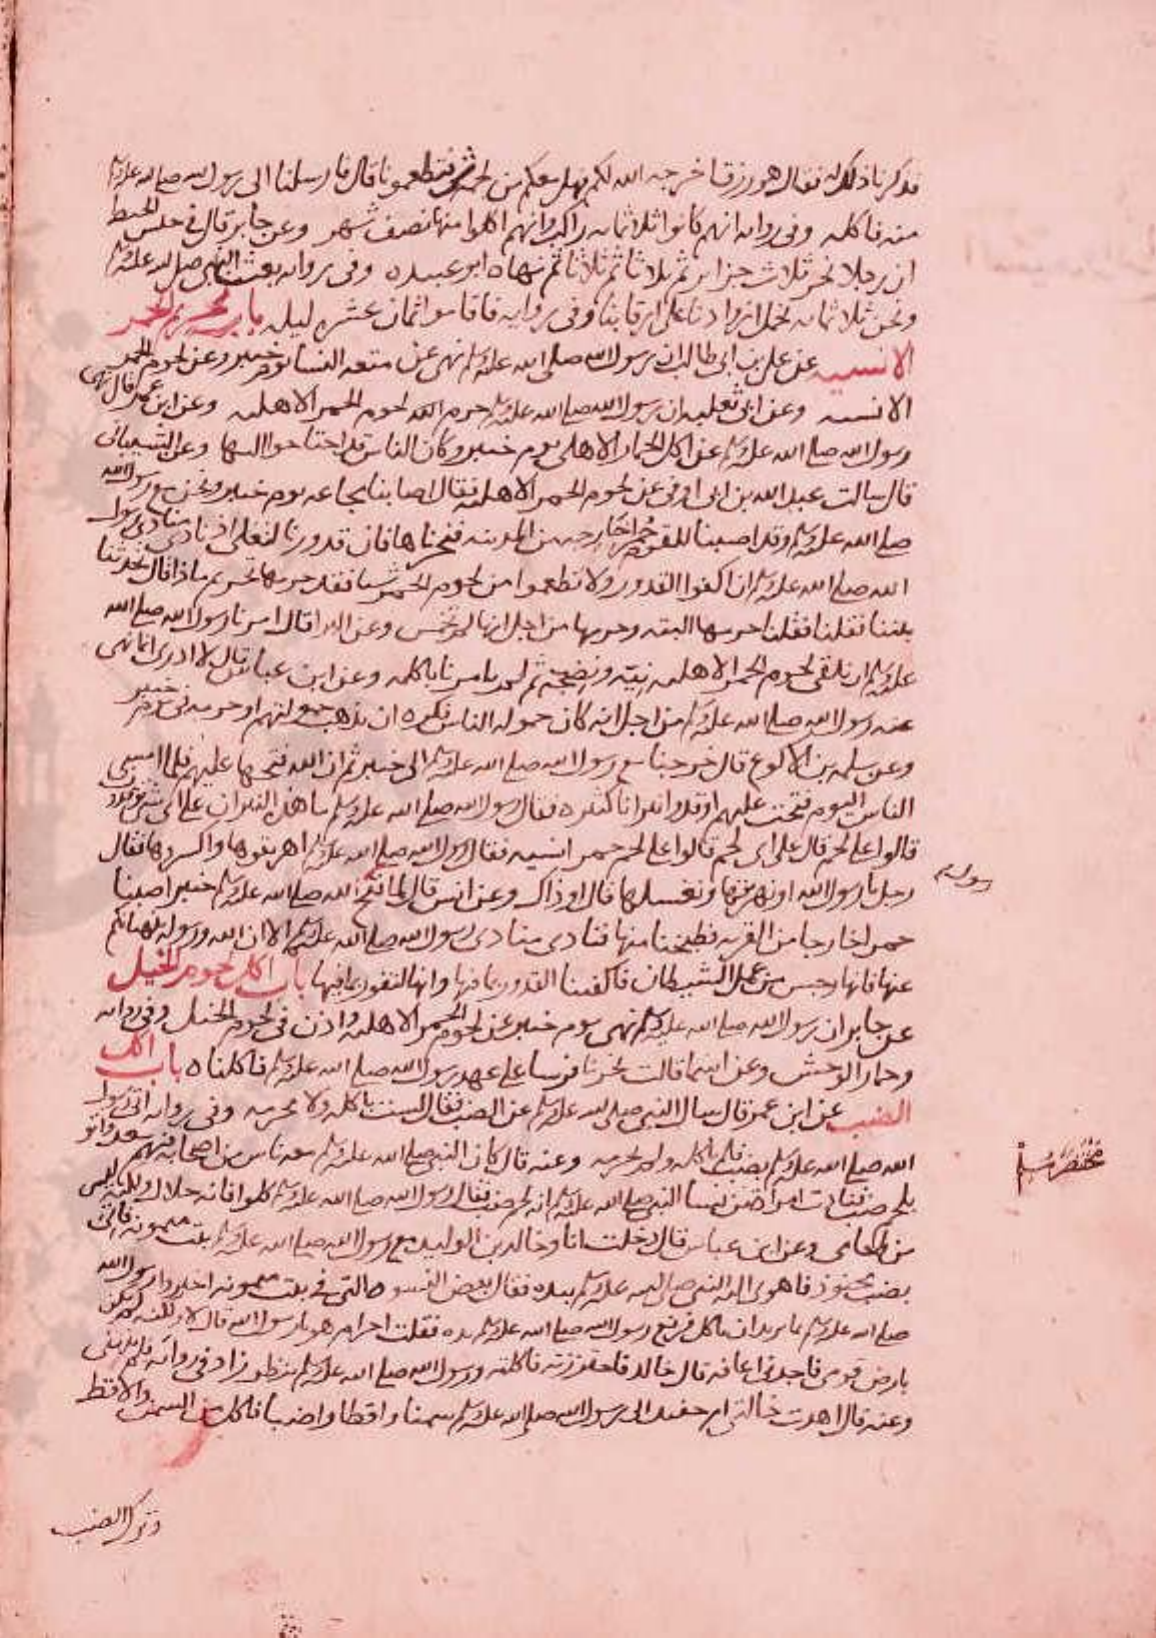 فذكرنا ذلك له فقال هو رزق اخرجه الله لكم فهل معكم من لحمه شئ فتطعمونا قال فارسلنا الى رسول الله صلى الله عليه وسلم
منه فاكله وفى رواية انهم كانوا ثلاثمايه راكب وانهم اكلوا منها نصف شهر وعن جابر قال فى جيش الخبط
ان رجلا نحر ثلاث جزاير ثم ثلاثا ثم ثلاثا ثم نهاه ابو عبيده وفى روايه بعثنا النبى صلى الله عليه وسلم
ونحن ثلاثمايه نحمل ازوادنا على رقابنا وفى روايه فاقاموا ثمان عشره ليله باب تحريم الحمر
الانسيه عن على بن ابى طالب ان رسول الله صلى الله عليه وسلم نهى عن متعه النسا يوم خيبر وعن لحوم الحمر
الانسيه وعن ابى ثعلبه ان رسول الله صلى الله عليه وسلم حرم لحوم الحمر الاهليه وعن ابن عمر قال نهى
رسول الله صلى الله عليه وسلم عن اكل الحمار الاهلى يوم خيبر وكان الناس قد احتاجوا اليها وعن الشيبانى
قال سالت عبد الله بن ابى اوفى عن لحوم الحمر الاهليه فقال اصابتنا مجاعه يوم خيبر ونحن مع رسول الله
صلى الله عليه وسلم وقد اصبنا للقوم حمرا خارجه من المدينه فنحرناها فان قدورنا لتغلى اذ نادى منادى رسول
الله صلى الله عليه وسلم ان اكفوا القدور ولا تطعموا من لحوم الحمر شيا فقلت حرمها تحريم ماذا قال تحدثنا
بيننا فقلنا حرمها البته وحرمها من اجل انها لم تخمس وعن البرا قال امرنا رسول الله صلى الله
عليه وسلم ان نلقى لحوم الحمر الاهليه نيه ونضيجه ثم لم يامرنا باكله وعن ابن عباس قال لا ادرى انما نهى
عنه رسول الله صلى الله عليه وسلم من اجل انه كان حموله الناس فكره ان تذهب حمولتهم او حرمه فى يوم خيبر
وعن سلمه بن الاكوع قال خرجنا مع رسول الله صلى الله عليه وسلم الى خيبر ثم ان الله فتحها عليهم فلما امسى
الناس اليوم فتحت عليهم اوقدوا نيرانا كثيره فقال رسول الله صلى الله عليه وسلم ما هذه النيران على اى شئ توقدون
قالوا على لحم قال على اى لحم قالوا على لحم حمر انسيه فقال رسول الله صلى الله عليه وسلم اهريقوها واكسروها فقال
رجل يا رسول الله او نهريقها ونغسلها قال او ذاك وعن انس قال لما فتح الله صلى الله عليه وسلم خيبر اصبنا
رسول
حمرا خارجا من القريه فطبخنا منها فنادى منادى رسول الله صلى الله عليه وسلم الا ان الله ورسوله ينهيانكم
عنها فانها رجس من عمل الشيطان فاكفينا القدور بما فيها وانها لتفور بما فيها باب اكل لحوم الخيل
عن جابر ان رسول الله صلى الله عليه وسلم نهى يوم خيبر عن لحوم الحمر الاهليه واذن فى لحوم الخيل وفى روايه
وحمار الوحش وعن اسما قالت نحرنا فرسا على عهد رسول الله صلى الله عليه وسلم فاكلناه باب اكل
الضب عن ابن عمر قال سال النبى صلى الله عليه وسلم عن الضب فقال لست باكله ولا محرمه وفى روايه اتى رسول
الله صلى الله عليه وسلم بضب فلم ياكله ولم يحرمه وعنه قال كان النبى صلى الله عليه وسلم معه ناس من اصحابه فيهم سعد واتو
مختصر مسلم
بلحم ضب فنادت امراة من نسا النبى صلى الله عليه وسلم انه لحم ضب فقال رسول الله صلى الله عليه وسلم كلوا فانه حلال ولكنه ليس
من طعامى وعن ابن عباس قال دخلت انا وخالد بن الوليد مع رسول الله صلى الله عليه وسلم بيت ميمونه فاتى
بضب محنوذ فاهوى اليه النبى صلى الله عليه وسلم بيده فقال بعض النسوه التى فى بيت ميمونه اخبروا رسول الله
صلى الله عليه وسلم بما يريد ان ياكل فرفع رسول الله صلى الله عليه وسلم يده فقلت احرام هو يا رسول الله قال لا ولكنه لم يكن
بارض قومى فاجدنى اعافه قال خالد فاجتررته فاكلته ورسول الله صلى الله عليه وسلم ينظر زاد فى روايه فلم ينهنى
وعنه قال اهدت خالتى ام حفيد الى رسول الله صلى الله عليه وسلم سمنا واقطا واضبا فاكل من السمن والاقط
وترك الضب